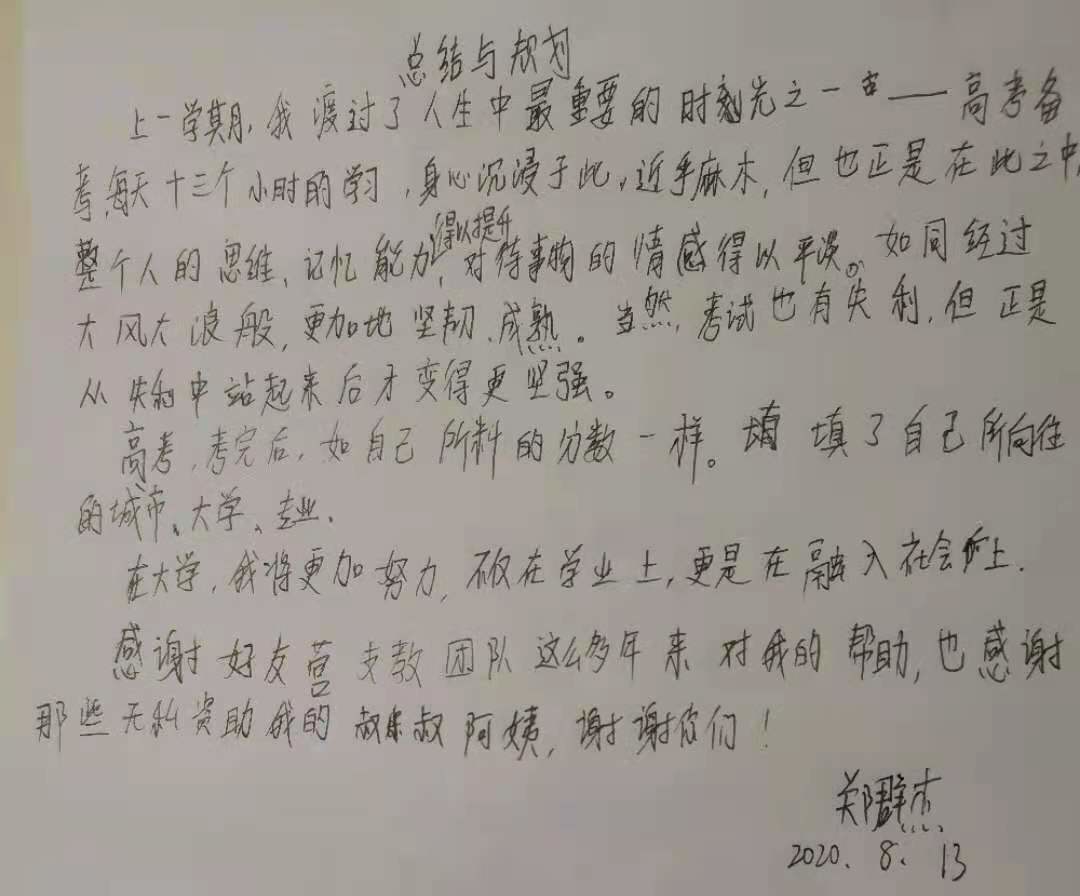 总结与规划
上一学期,我渡过了人生中最重要的时刻之一——高考备
考,每天十三个小时的学习,身心沉浸于此,近乎麻木,但也正是在此之中,
整个人的思维、记忆能力得以提升,对待事物的情感得以平淡。如同经过
大风大浪般,更加地坚韧、成熟。当然,考试也有失利,但正是
从失利中站起来后才变得更坚强。
高考,考完后,如自己所料的分数一样。填填了自己所向往
的城市、大学、专业.
在大学,我将更加努力,不仅在学业上,更是在融入社会上.
感谢好友营支教团队这么多年来对我的帮助,也感谢
那些无私资助我的叔叔阿姨,谢谢你们!
郑群杰
2020.8.13